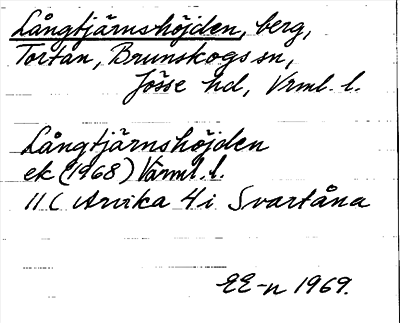 Långtjärnshöjden, berg,
Tortan, Brunskogs sn,
Jösse hd, Vrml. l.
Långtjärnshöjden
ek (1968) Värml. l.
11C Arvika 4i Svartåna
EE-n 1969.